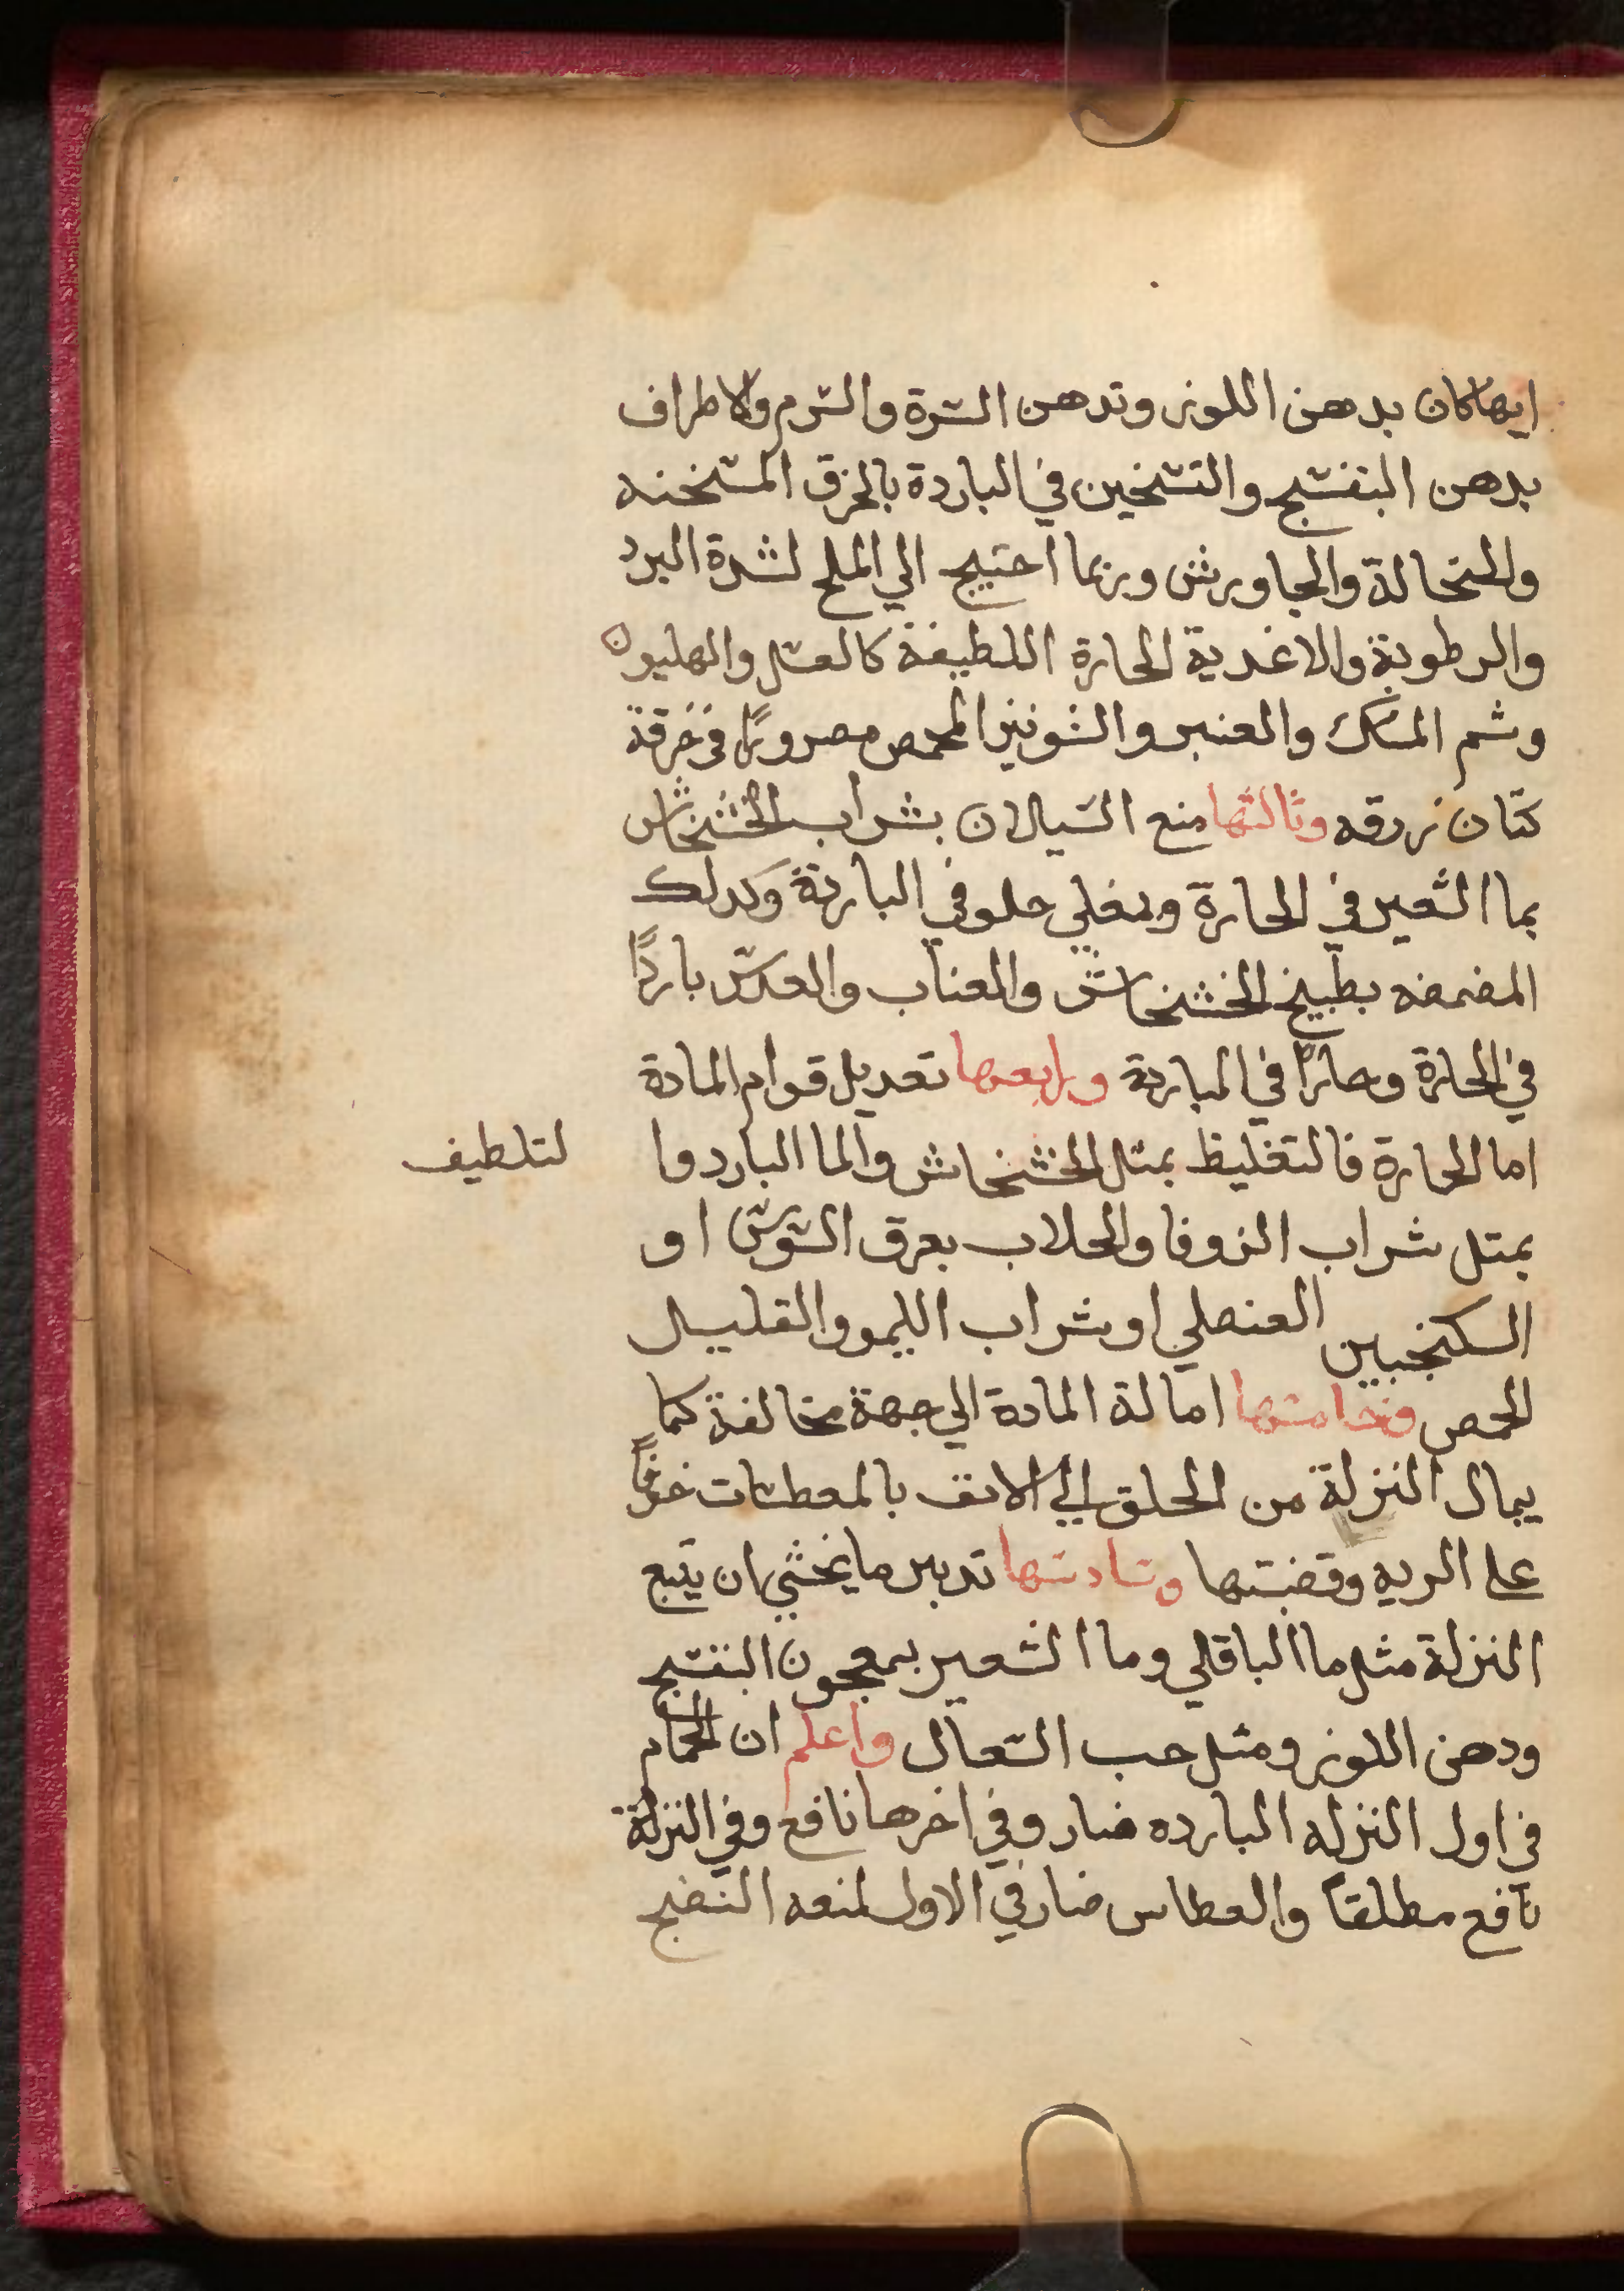 ايهاكان بدهن اللوز وتدهن السرة والسرم والاطراف
بدهن البنفسج والتسخين في الباردة بالخرق المسخنه
والنخالة والجاورش وربما احتيج الي الملح لشدة البرد
والرطوبة والاغدية الحارة اللطيفة كالعسل والهليون
وشم المسك والعنبر والشونيز المحمص مصرورًا في خرقة
كتان زرقه وثالثها منع السيلان بشراب الخشخاش
بما الشعير في الحارة ومغلي حلو في الباردة وكدلك
المضمضه بطبيخ الخشخاش والعناب والعدس باردًا
في الحارة وحارًا في الباردة ورابعها تعديل قوام المادة
اما الحارة فالتغليظ بمتل الخشخاش والما البارد وا لتلطيف
بمتل شراب الزوفا والجلاب بعرق السوس او
السكنجبين العنصلي او شراب الليمو والقليل
الحمص وخامسها امالة المادة الي جهة مخالفة كما
يمال النزلة من الحلق الي الانف بالمعطسات خوفًا
علي الريه وقصبتها وسادسها تدبير ما يخشي ان يتبع
النزلة مثل ما الباقلي وما الشعير بمعجون البنفسج
ودهن اللوز ومثل حب السعال واعلم ان الحمام
في اول النزله البارده ضار وفي اخرها نافع وفي النزلة
نافع مطلقاً والعطاس ضار في الاول لمنعه النضج